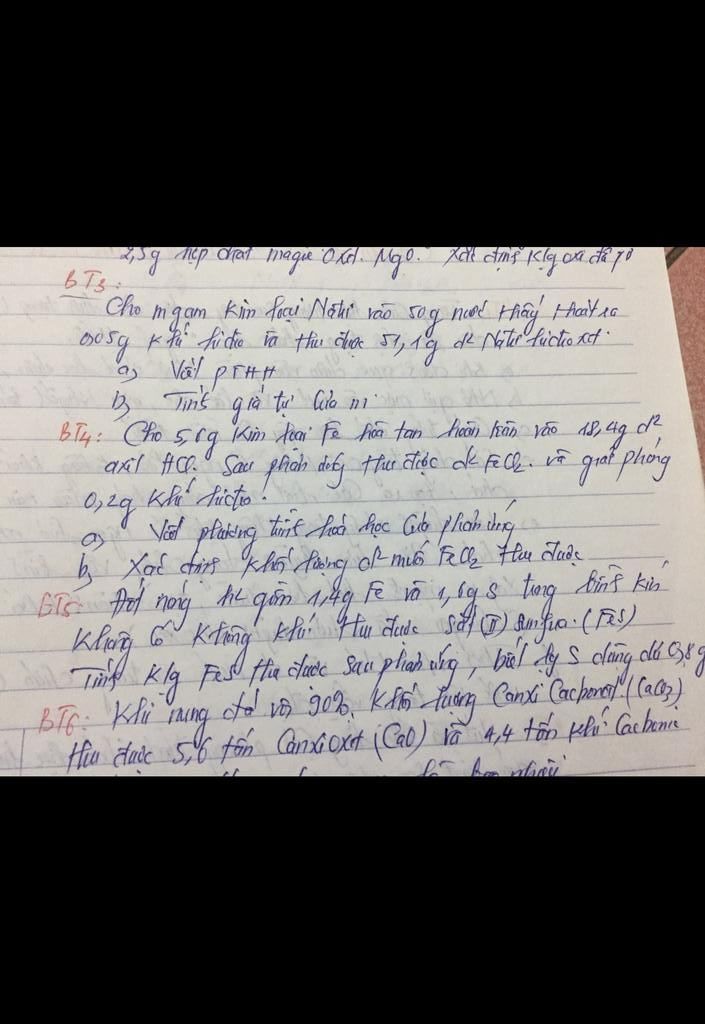 2,5g hợp chất magie Oxit. MgO. Xác định klg oxi đã p/ứ
BT3:
Cho m gam kim loại Natri vào 50g nước thấy thoát ra
0,05g khí hiđro và thu được 51,1g d² Natri hiđroxit.
a, Viết PTHH
b, Tính giá trị của m.
BT4: Cho 5,6g kim loại Fe hòa tan hoàn toàn vào 18,4g d²
axit HCl. Sau phản ứng thu được d² FeCl2. và giải phóng
0,2g khí hiđro.
a, Viết phương trình hoá học của phản ứng
b, Xác định khối lượng d² muối FeCl2 thu được
BT5: Đốt nóng hh gồm 1,4g Fe và 1,6g S trong bình kín
không có không khí thu được sắt (II) sunfua. (FeS)
Tính klg FeS thu được sau phản ứng, biết lg S dùng dư 0,8g
BT6: Khi nung đá vôi 90% khối lượng Canxi Cacbonat (CaCO3)
thu được 5,6 tấn Canxi oxit (CaO) và 4,4 tấn khí Cacbonic